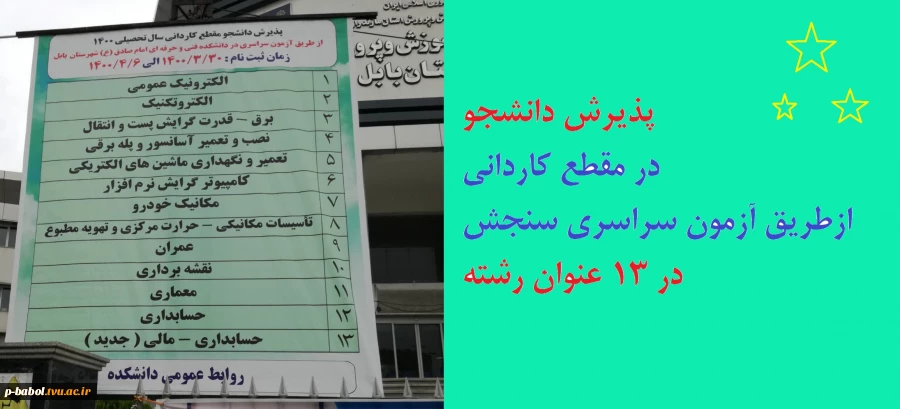 پذیرش دانشجو مقطع کاردانی سال تحصیلی ۱۴۰۰
از طریق آزمون سراسری در دانشکده فنی و حرفه ای امام صادق (ع) شهرستان بابل
زمان ثبت نام : ۱۴۰۰/۳/۳۰ الی ۱۴۰۰/۴/۶
۱ الکترونیک عمومی
۲ الکتروتکنیک
۳ برق – قدرت گرایش پست و انتقال
۴ نصب و تعمیر آسانسور و پله برقی
۵ تعمیر و نگهداری ماشین های الکتریکی
۶ کامپیوتر گرایش نرم افزار
۷ مکانیک خودرو
۸ تأسیسات مکانیکی – حرارت مرکزی و تهویه مطبوع
۹ عمران
۱۰ نقشه برداری
۱۱ معماری
۱۲ حسابداری
۱۳ حسابداری – مالی ( جدید )
روابط عمومی دانشکده
p-babol.tvu.ac.ir
پذیرش دانشجو
در مقطع کاردانی
ازطریق آزمون سراسری سنجش
در ۱۳ عنوان رشته